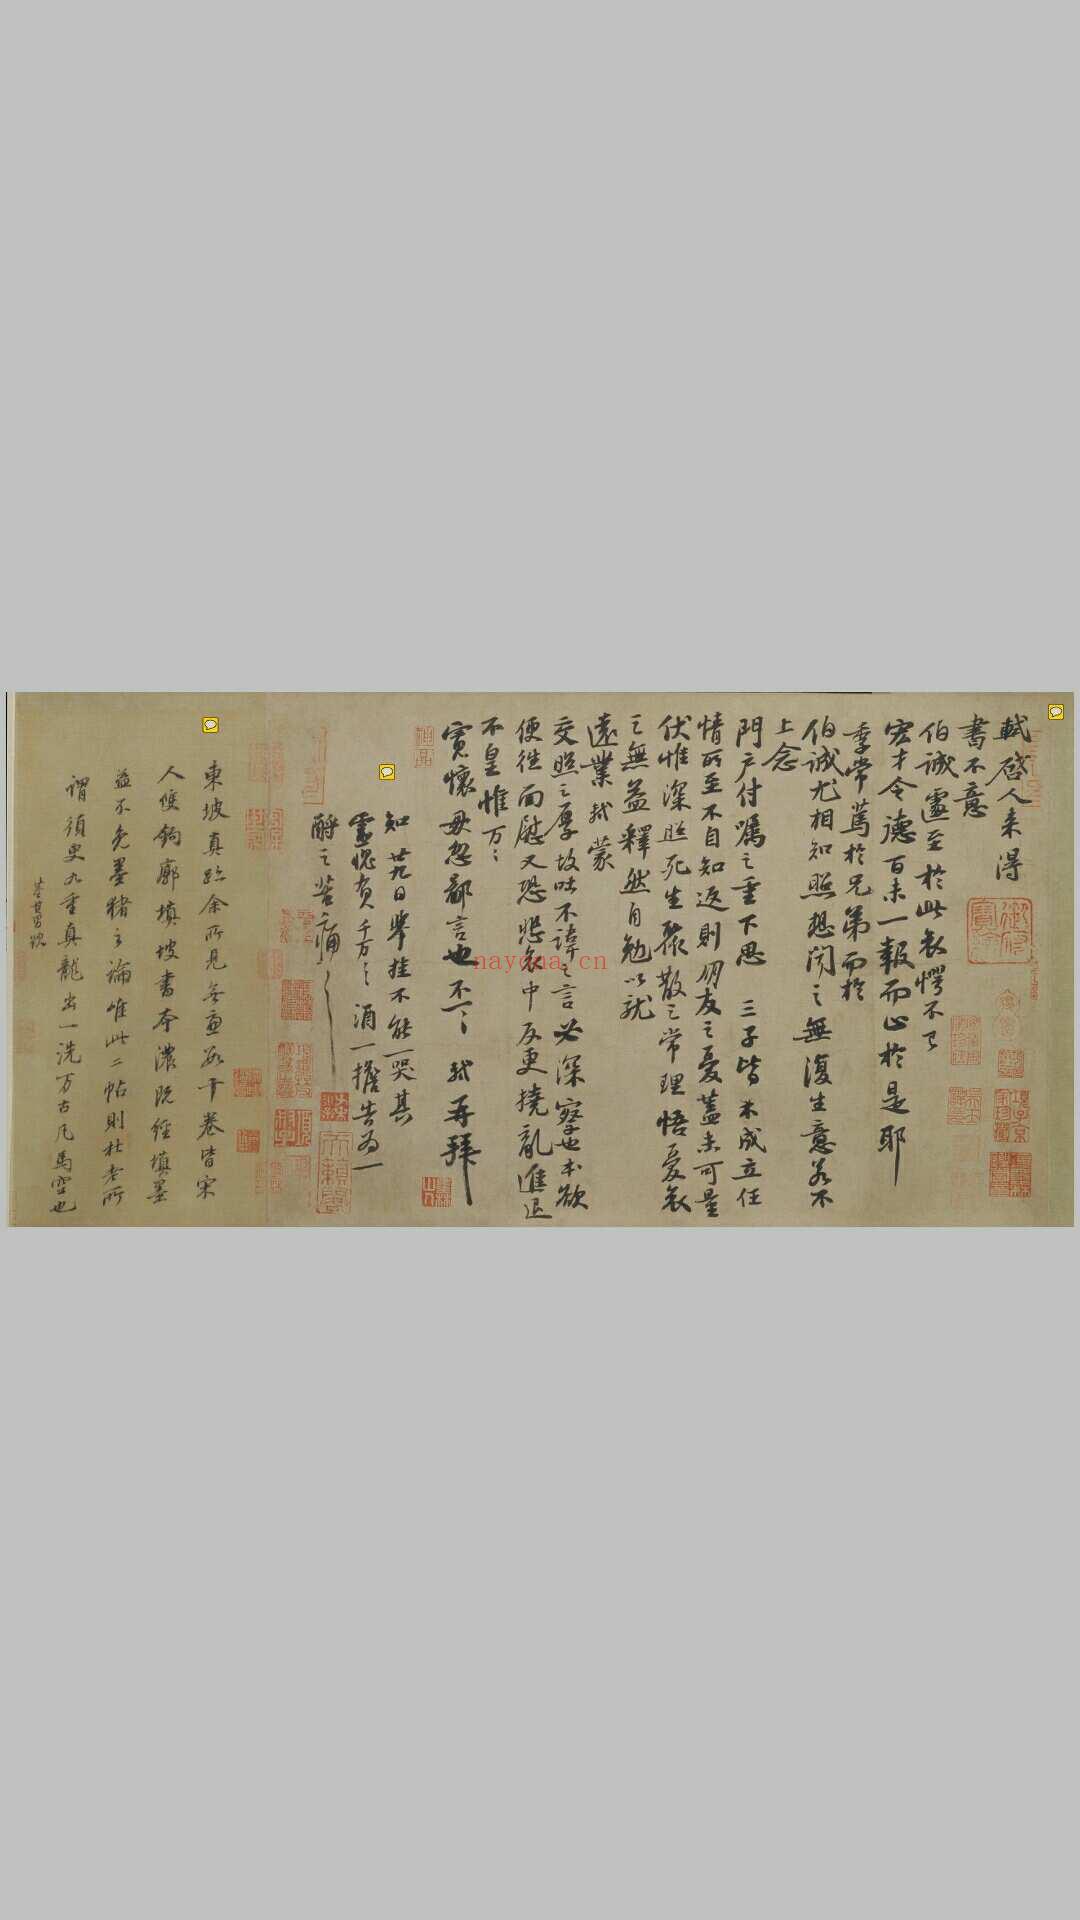 軾啓人來得
書不意
伯誠遽至於此哀愕不已
宏才令德百未一報而止於是耶
季常篤於兄弟而於
伯誠尤相知照想聞之無復生意若不
上念
門户付囑之重下思三子皆未成立任
情所至不自知返則朋友之憂蓋未可量
伏惟深照死生聚散之常理悟憂哀
之無益釋然自勉以就
遠業軾蒙
交照之厚故吐不諱之言必深察也本欲
便往面慰又恐悲哀中反更撓亂進退
不皇惟万〻
寬懷毋忽鄙言也不一〻軾再拜
知廿九日舉挂不能一哭其
靈愧負千万〻酒一擔告為一
酹之苦痛〻
東坡真跡余所見無慮數十卷皆宋
人雙鉤廓填坡書本濃既經填墨
益不免墨豬之論唯此二帖則杜老所
謂須臾九重真龍出一洗万古凡馬空也
董其昌跋
nayona.cn